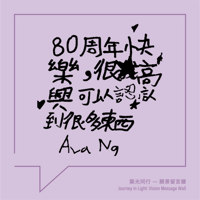 80周年快
樂，很高
興可以認識
到很多東西
Ava Ng
築光同行 — 願景留言牆
Journey in Light: Vision Message Wall